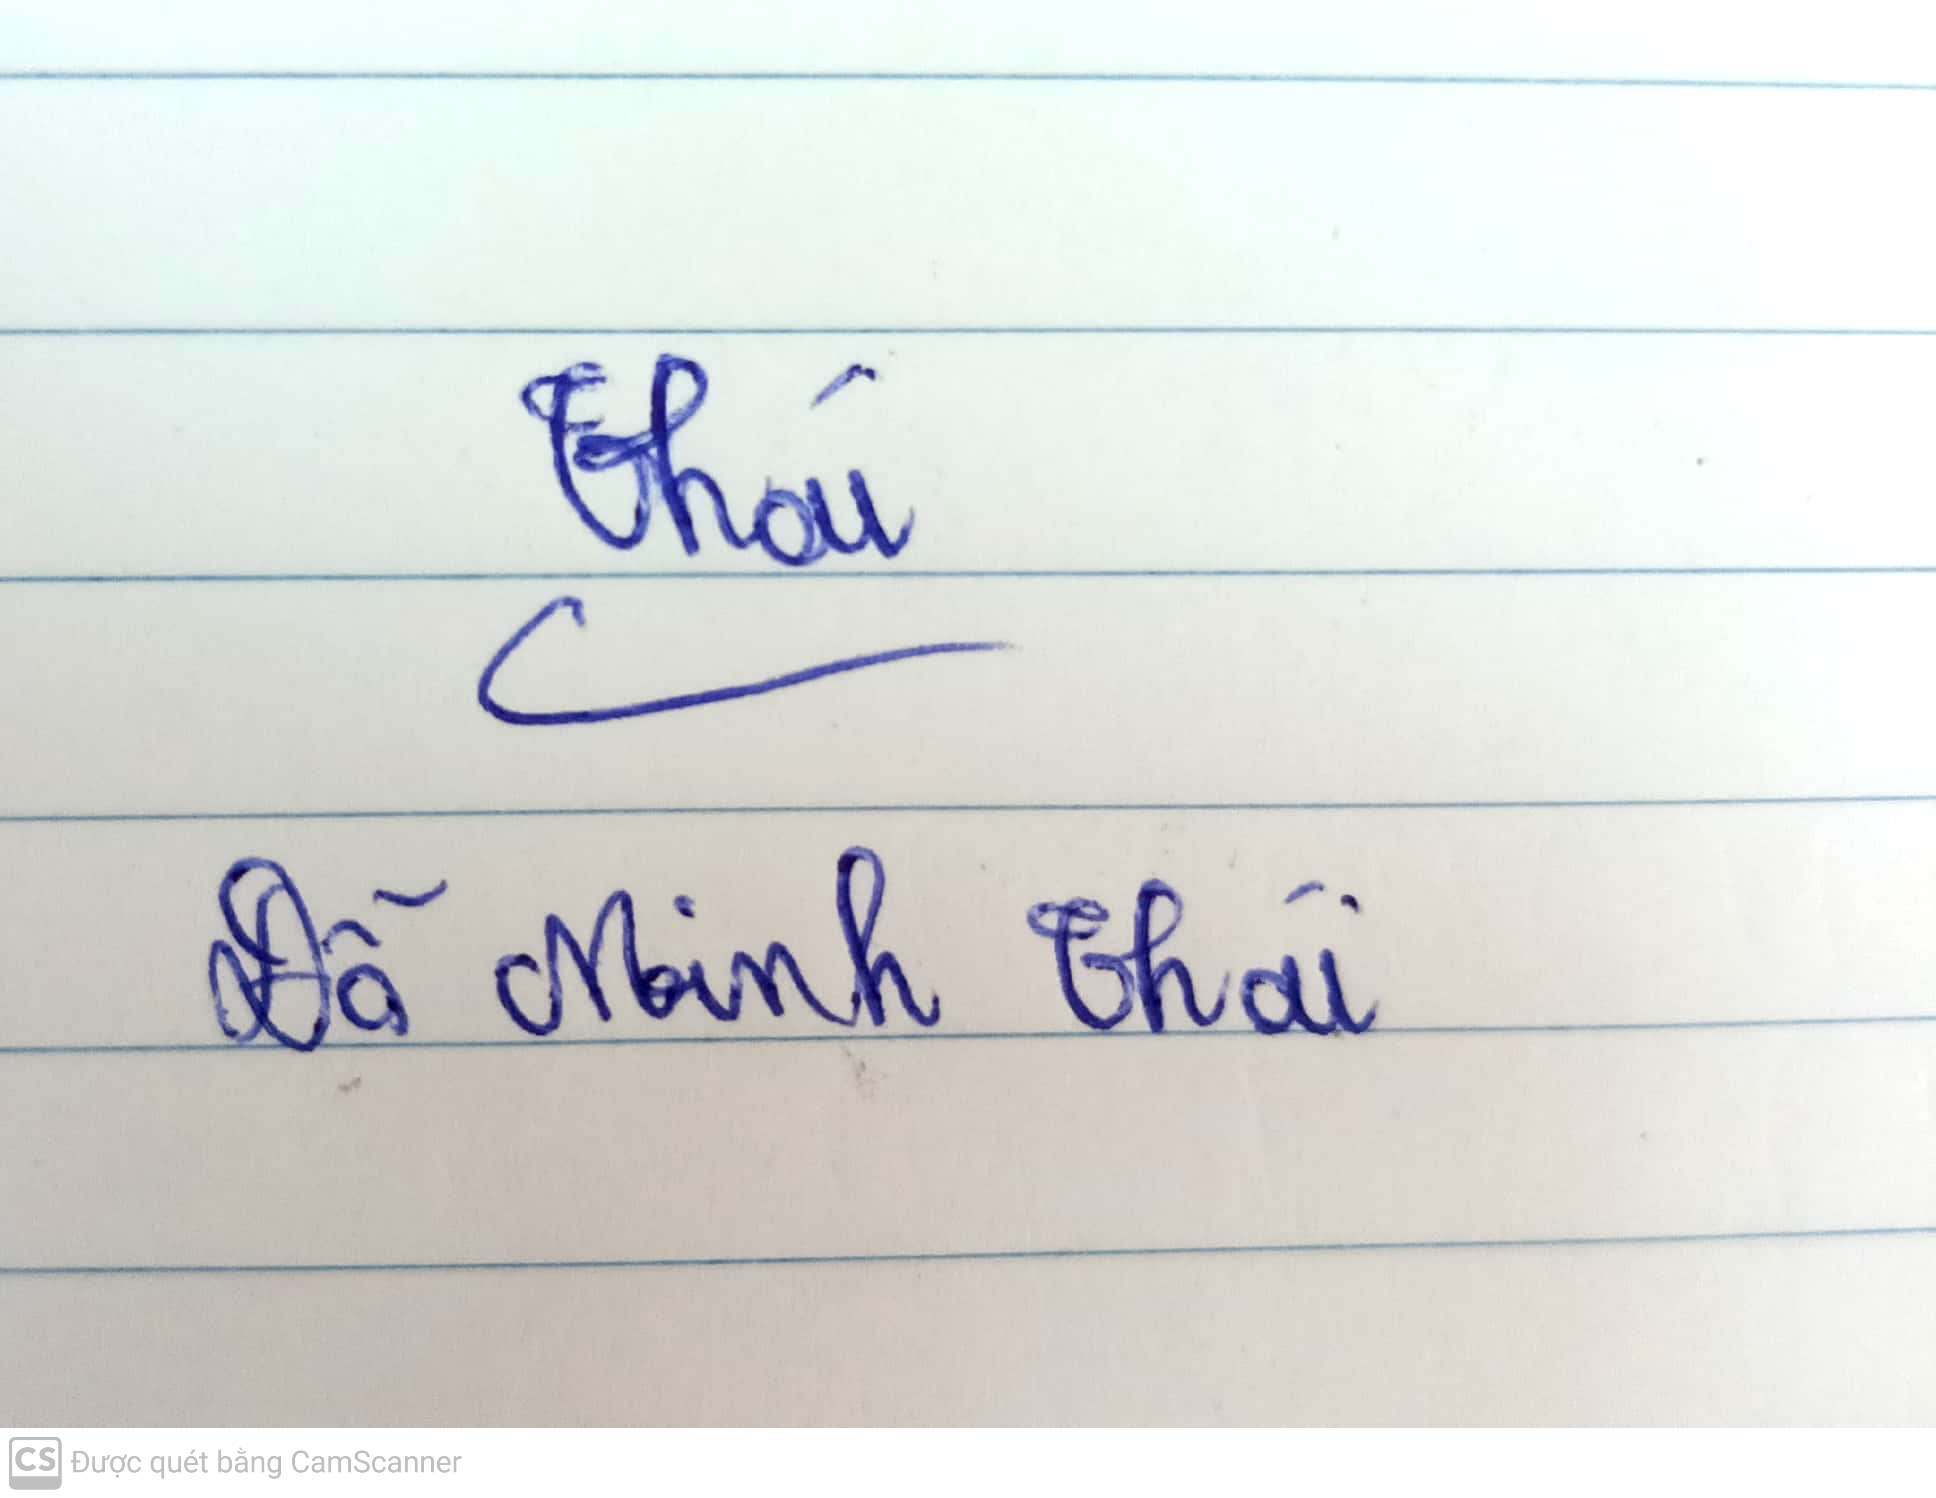 Thái
Đỗ Minh Thái
CS Được quét bằng CamScanner